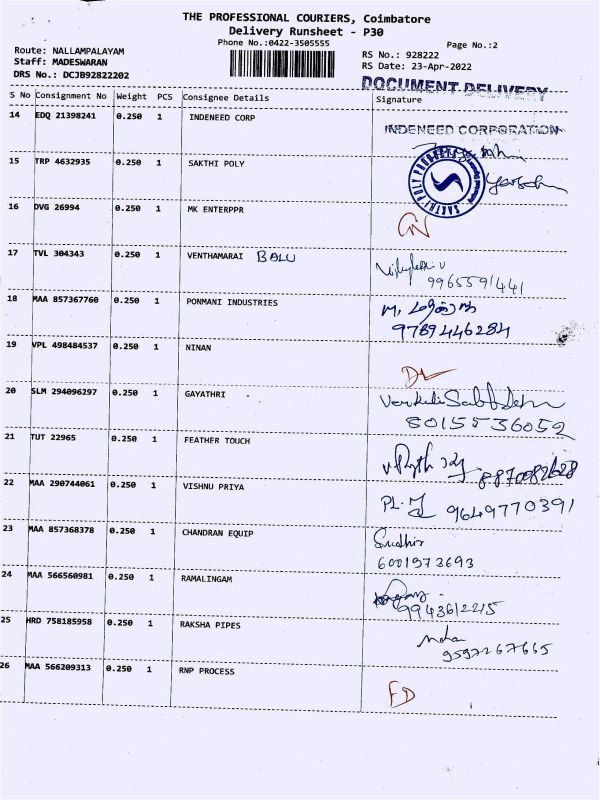 THE PROFESSIONAL COURIERS, Coimbatore
Delivery Runsheet - P30
Phone No.:0422-3505555
Page No.:2
Route: NALLAMPALAYAM
Staff: MADESWARAN
DRS No.: DCJB92822202
RS No.: 928222
RS Date: 23-Apr-2022
DOCUMENT DELIVERY
S No Consignment No Weight PCS Consignee Details Signature
14 EDQ 21398241 0.250 1 INDENEED CORP
INDENEED CORPORATION
15 TRP 4632935 0.250 1 SAKTHI POLY
SAKTHI POLY
16 DVG 26994 0.250 1 MK ENTERPPR
17 TVL 304343 0.250 1 VENTHAMARAI BALU
9965591441
18 MAA 857367760 0.250 1 PONMANI INDUSTRIES
9789446284
19 VPL 498484537 0.250 1 NINAN
DL
20 SLM 294096297 0.250 1 GAYATHRI
8015536052
21 TUT 22965 0.250 1 FEATHER TOUCH
22 MAA 290744061 0.250 1 VISHNU PRIYA
9649770391
23 MAA 857368378 0.250 1 CHANDRAN EQUIP
Sudhir
6001973693
24 MAA 566560981 0.250 1 RAMALINGAM
9943612215
25 HRD 758185958 0.250 1 RAKSHA PIPES
Mohan
9597267665
26 MAA 566209313 0.250 1 RNP PROCESS
FD